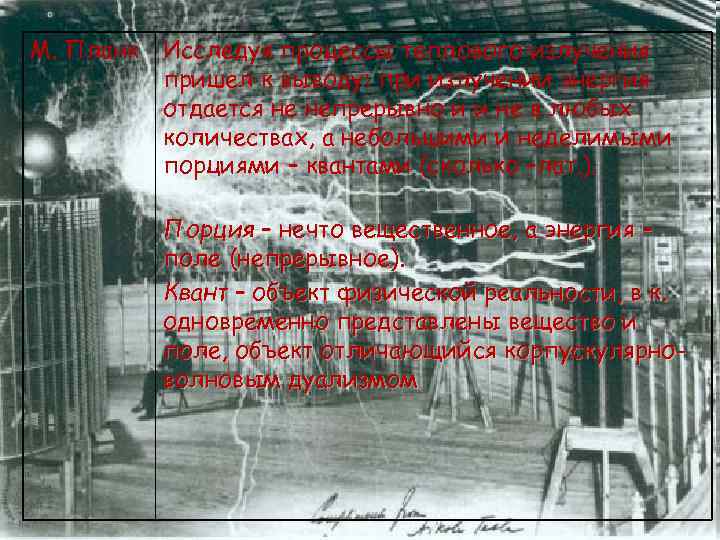 М. Планк Исследуя процессы теплового излучения
пришел к выводу: при излучении энергия
отдается не непрерывно и и не в любых
количествах, а небольшими и неделимыми
порциями – квантами (сколько –лат.).
Порция – нечто вещественное, а энергия –
поле (непрерывное).
Квант – объект физической реальности, в к.
одновременно представлены вещество и
поле, объект отличающийся корпускулярно-
волновым дуализмом
Nikola Tesla